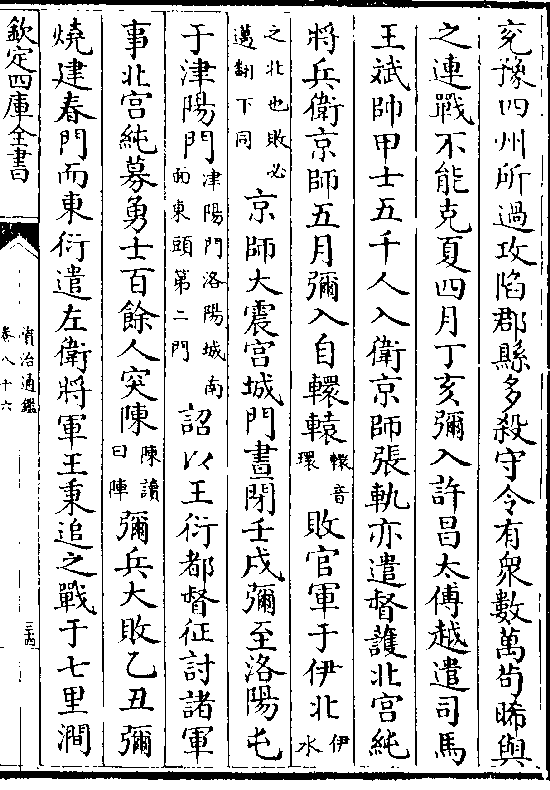 兖豫四州所過攻陷郡縣多殺守令有衆數萬茍晞與
之連戰不能克夏四月丁亥彌入許昌太傅越遣司馬
王斌帥甲士五千人入衛京師張軌亦遣督護北宮純
將兵衛京師五月彌入自轘轅轘音環敗官軍于伊北伊水
之北也敗必邁翻下同京師大震宮城門晝閉壬戌彌至洛陽屯
于津陽門津陽門洛陽城南面東頭第二門詔以王衍都督征討諸軍
事北宮純募勇士百餘人突陳陳讀曰陣彌兵大敗乙丑彌
燒建春門而東衍遣左衛將軍王秉追之戰于七里澗
欽定四庫全書
資治通鑑
卷八十六
三十四